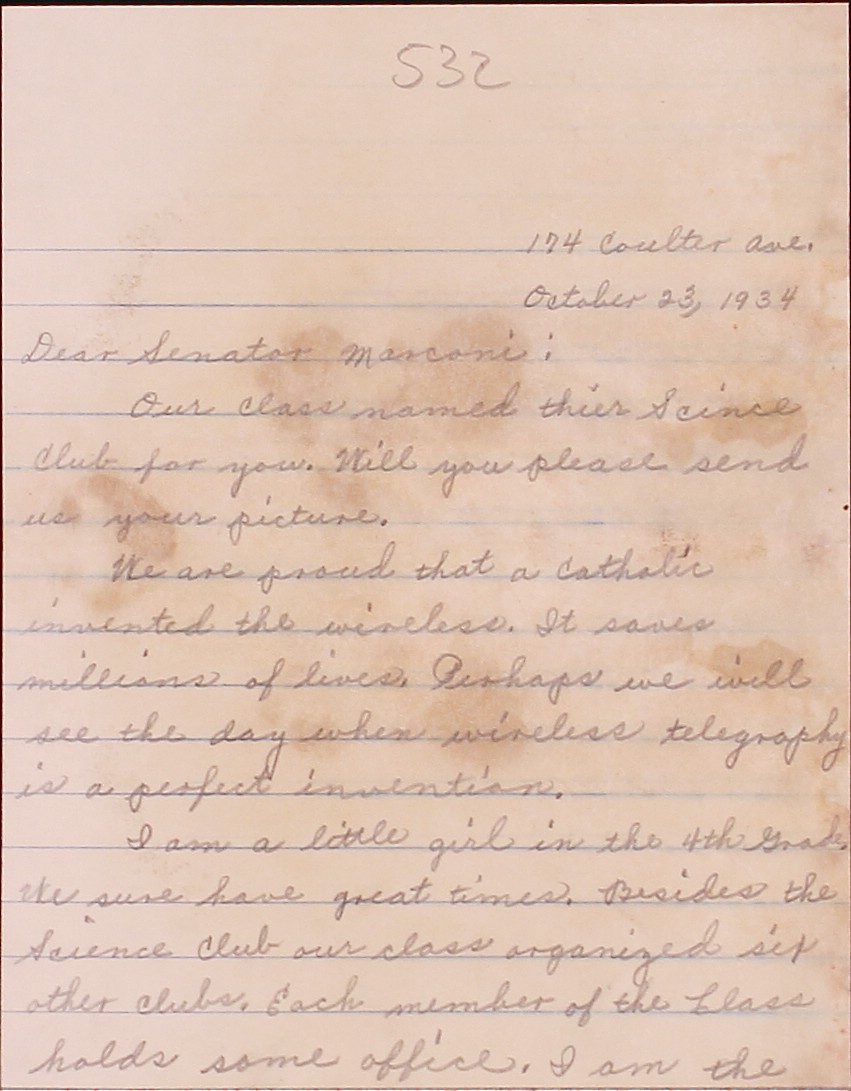 532
174 Coulter Ave.
October 23, 1934
Dear Senator Marconi:
Our class named thier Scince
Club for you. Will you please send
us your picture.
We are proud that a Catholic
invented the wireless. It saves
millions of lives. Perhaps we will
see the day when wireless telegraphy
is a perfect invention.
I am a little girl in the 4th Grade.
We sure have great times. Besides the
Science Club our class organized six
other clubs. Each member of the Class
holds some office. I am the